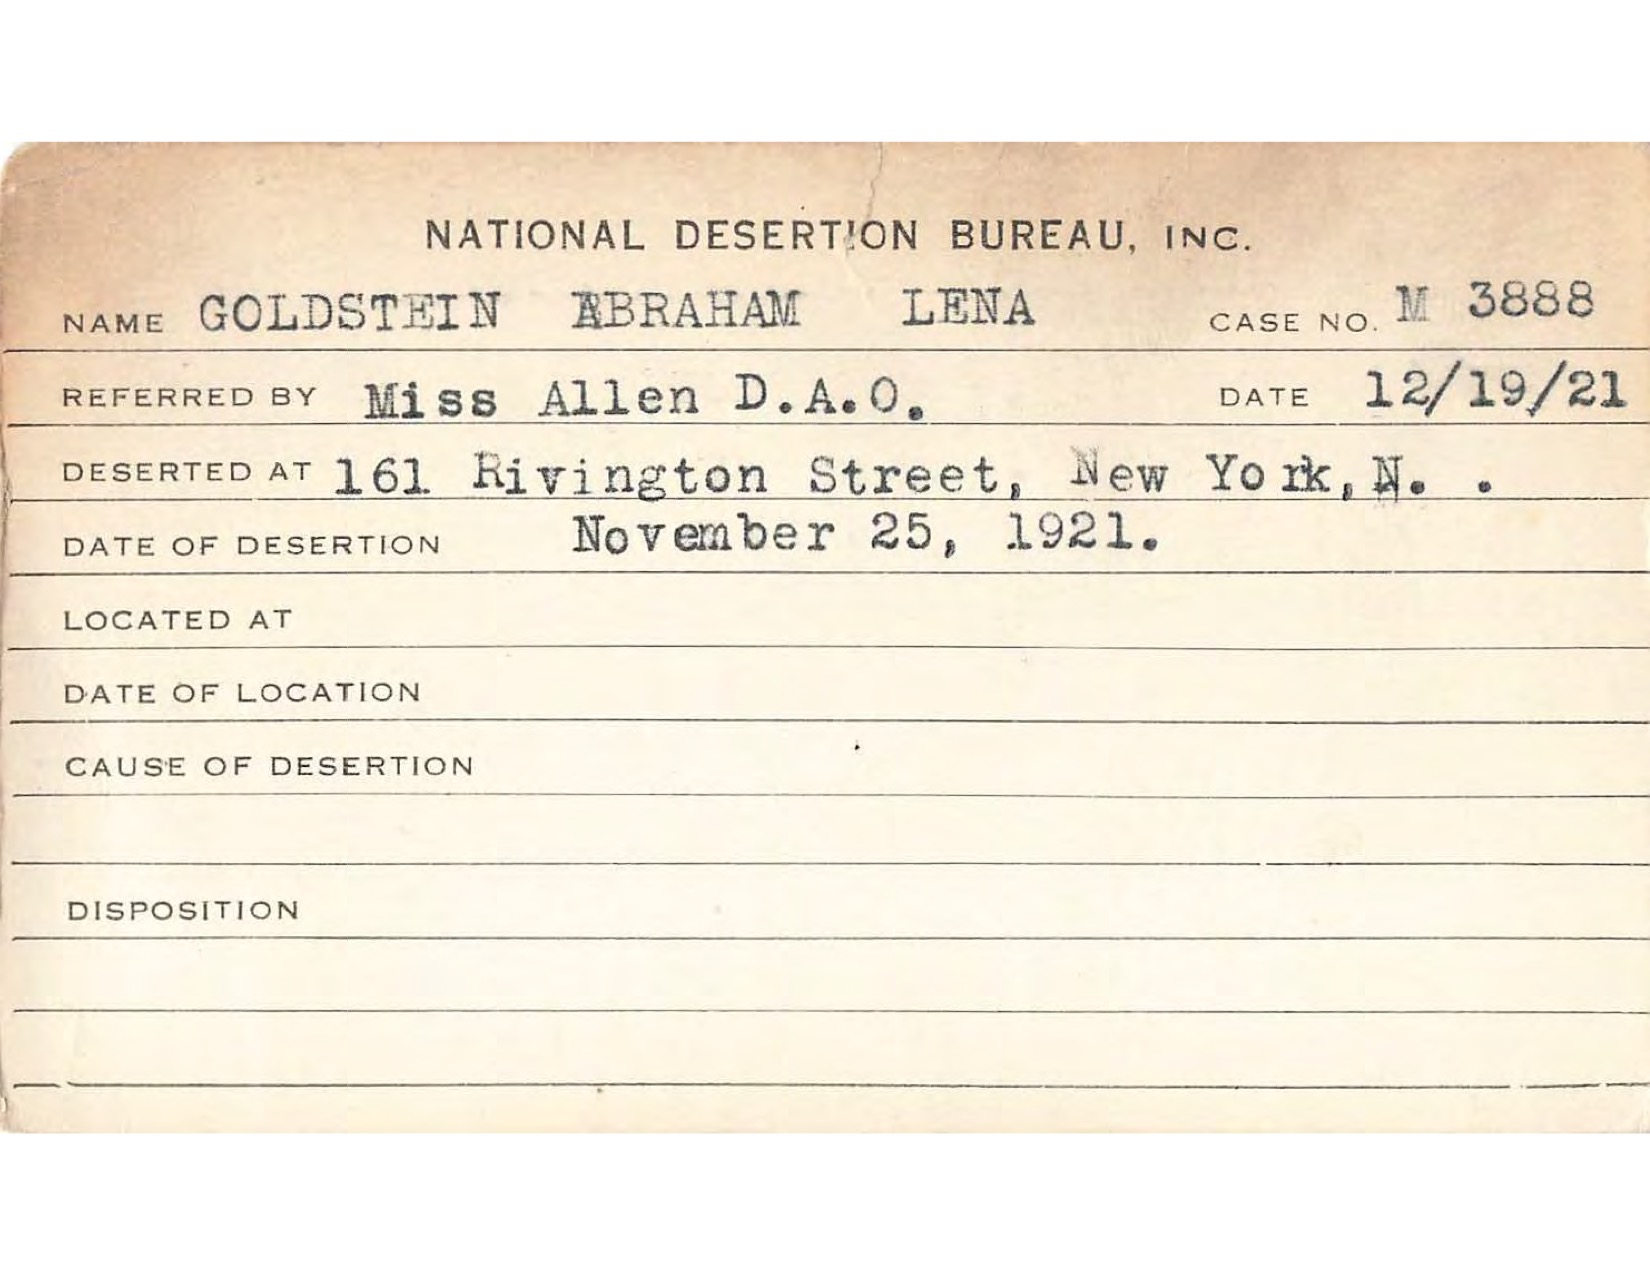 NATIONAL DESERTION BUREAU, INC.
NAME GOLDSTEIN ABRAHAM LENA CASE NO. M 3888
REFERRED BY Miss Allen D.A.O. DATE 12/19/21
DESERTED AT 161 Rivington Street, New York, N. .
DATE OF DESERTION November 25, 1921.
LOCATED AT
DATE OF LOCATION
CAUSE OF DESERTION
DISPOSITION